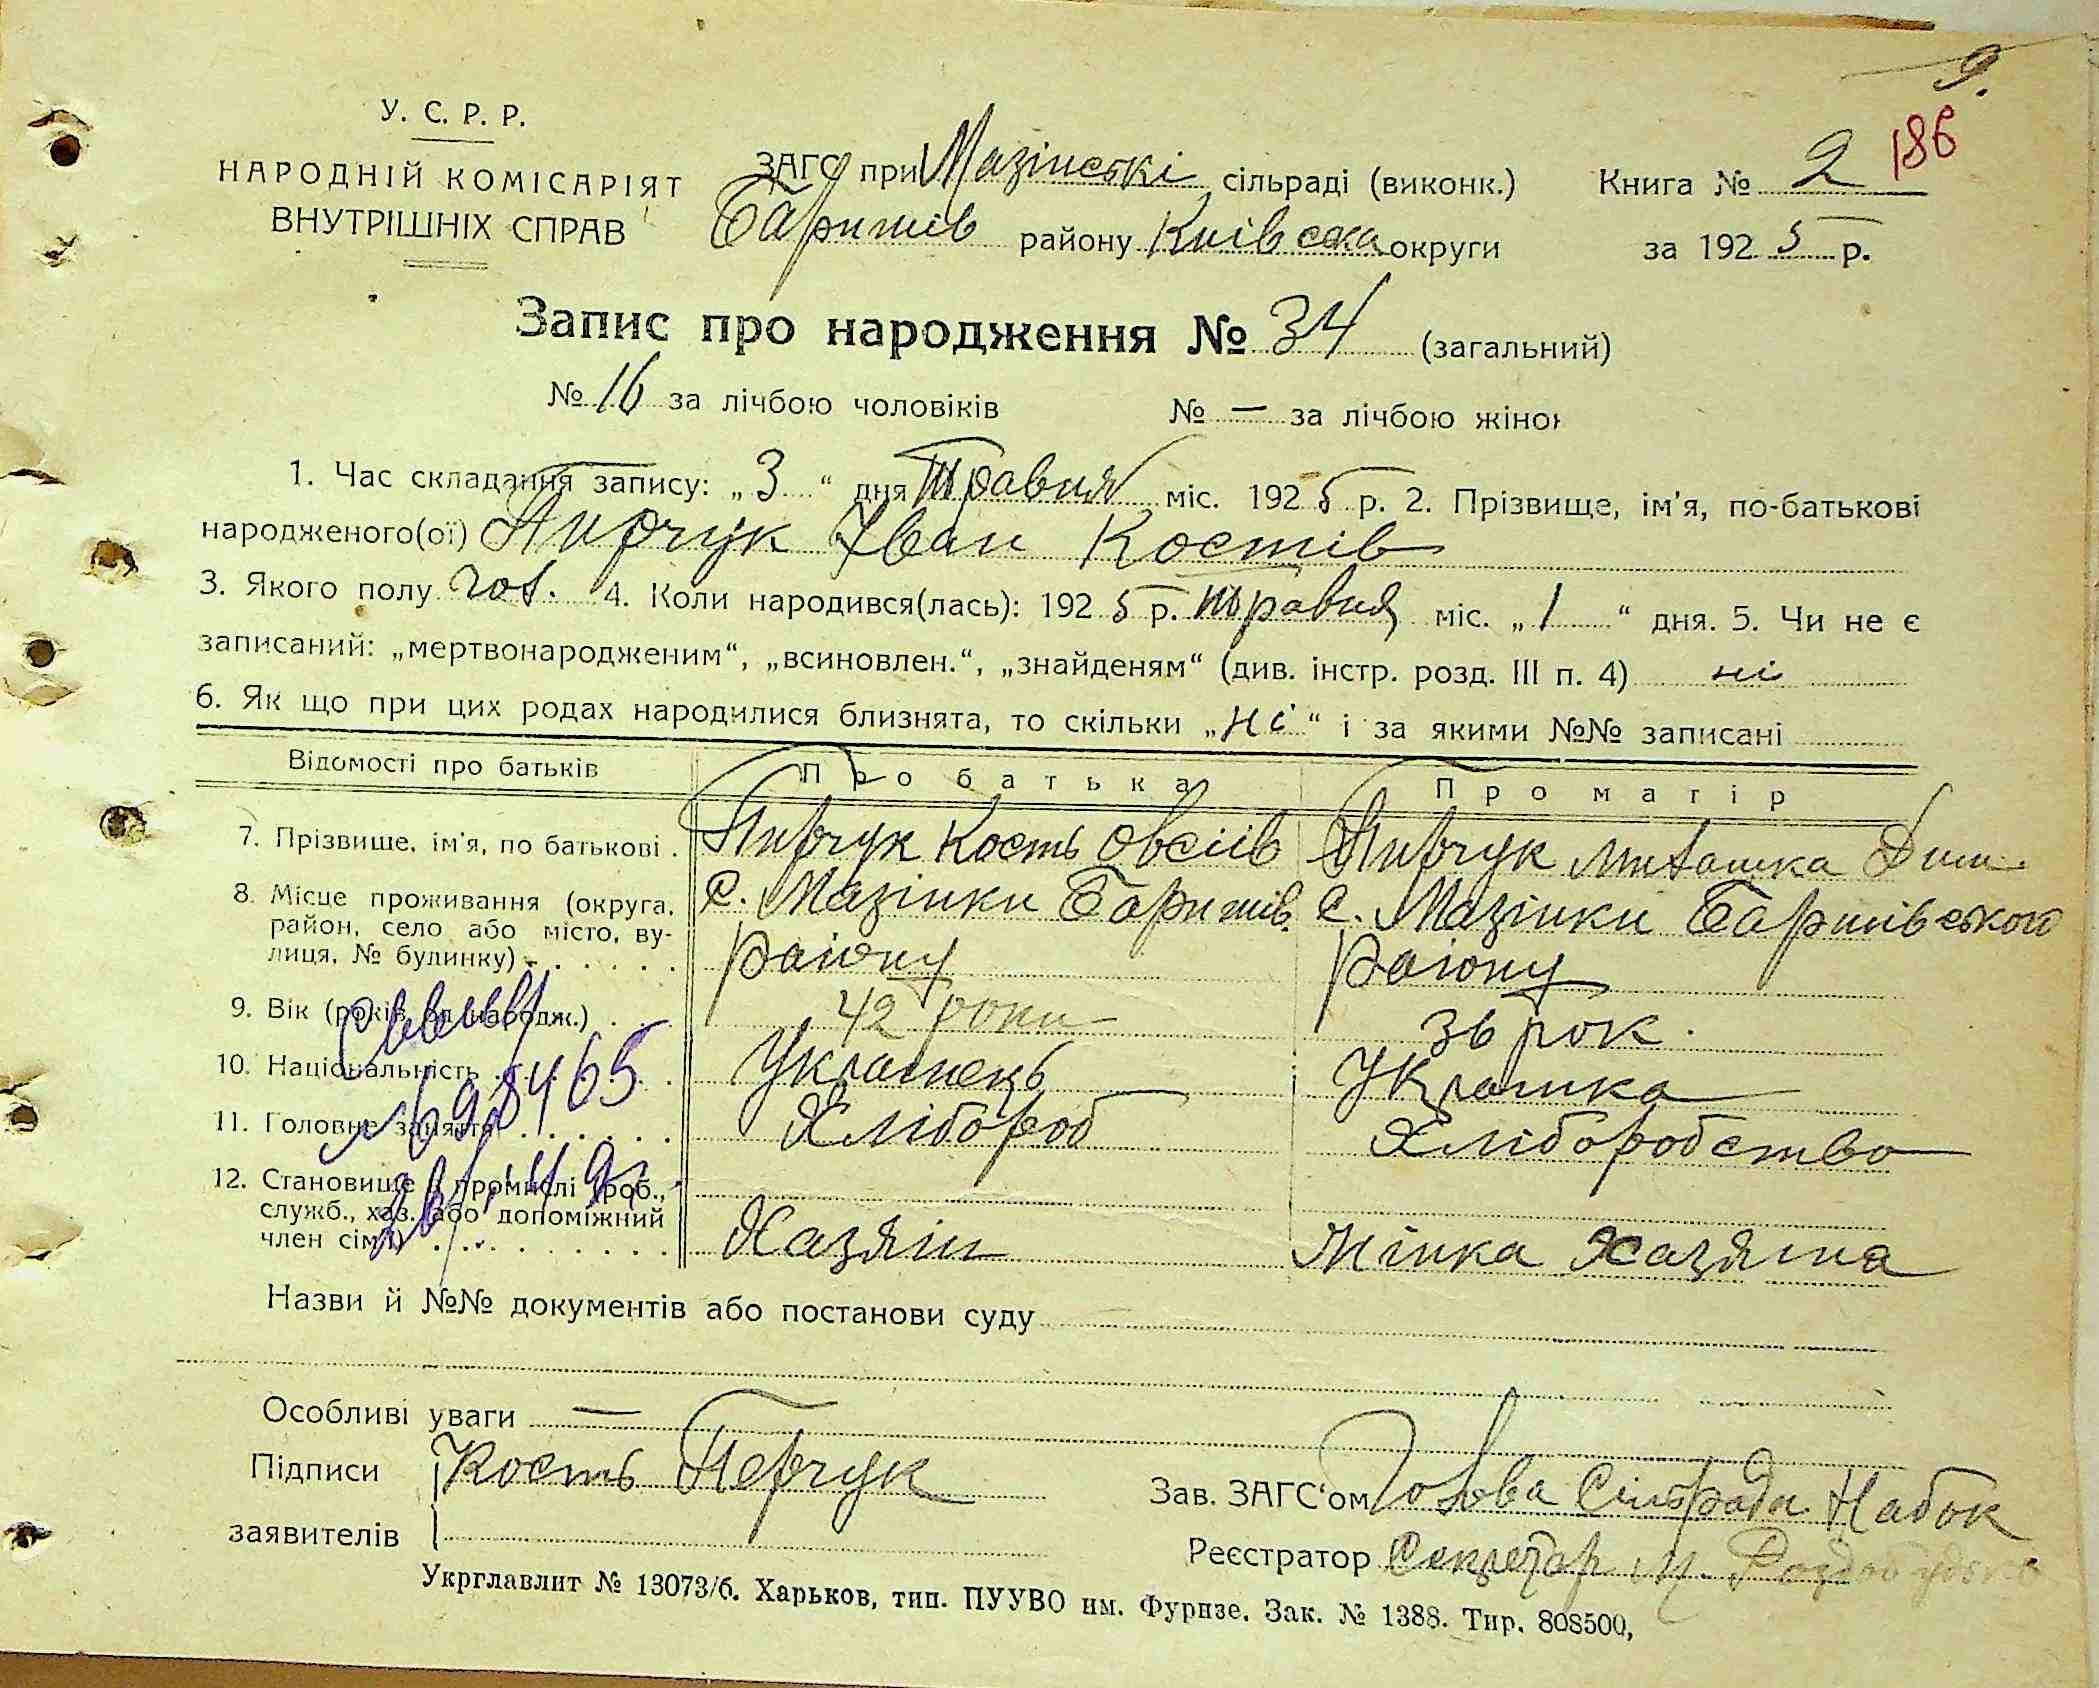 9.
186
У. С. Р. Р.
НАРОДНІЙ КОМІСАРІЯТ
ВНУТРІШНІХ СПРАВ
ЗАГС при Мазінські сільраді (виконк.)
Баришів району Київська округи
Книга № 2
за 1925 р.
Запис про народження № 34 (загальний)
№ 16 за лічбою чоловіків № — за лічбою жінок
1. Час складання запису: „3“ дня Травня міс. 1925 р. 2. Прізвище, ім'я, по-батькові
народженого(ої) Пирчук Іван Костів
3. Якого полу чол. 4. Коли народився(лась): 1925 р. травня міс. „1“ дня. 5. Чи не є
записаний: „мертвонародженим“, „всиновлен.“, „знайденям“ (див. інстр. розд. III п. 4) ні
6. Як що при цих родах народилися близнята, то скільки „ні“ і за якими №№ записані
Відомості про батьків Про батька Про матір
7. Прізвище, ім'я, по батькові . Пирчук Кость Овсіів Пирчук
8. Місце проживання (округа, с. Мазінки Баришів. с. Мазінки Баришівського
район, село або місто, ву-
лиця, № булинку) району району
9. Вік (років від народж.) 42 роки 36 рок.
10. Національність Українець Українка
11. Головне заняття Хлібороб Хліборобство
12. Становище в промислі (роб.,
служб., хаз. або допоміжний
член сім'ї) Хазяін Жінка Хазяіна
№ 698465
Назви й №№ документів або постанови суду
Особливі уваги —
Підписи Кость Перчук
заявителів
Зав. ЗАГС'ом Голова Сільради Набок
Реєстратор Секретар М.
Укрглавлит № 13073/б. Харьков, тип. ПУУВО им. Фурнзе. Зак. № 1388. Тир. 808500,